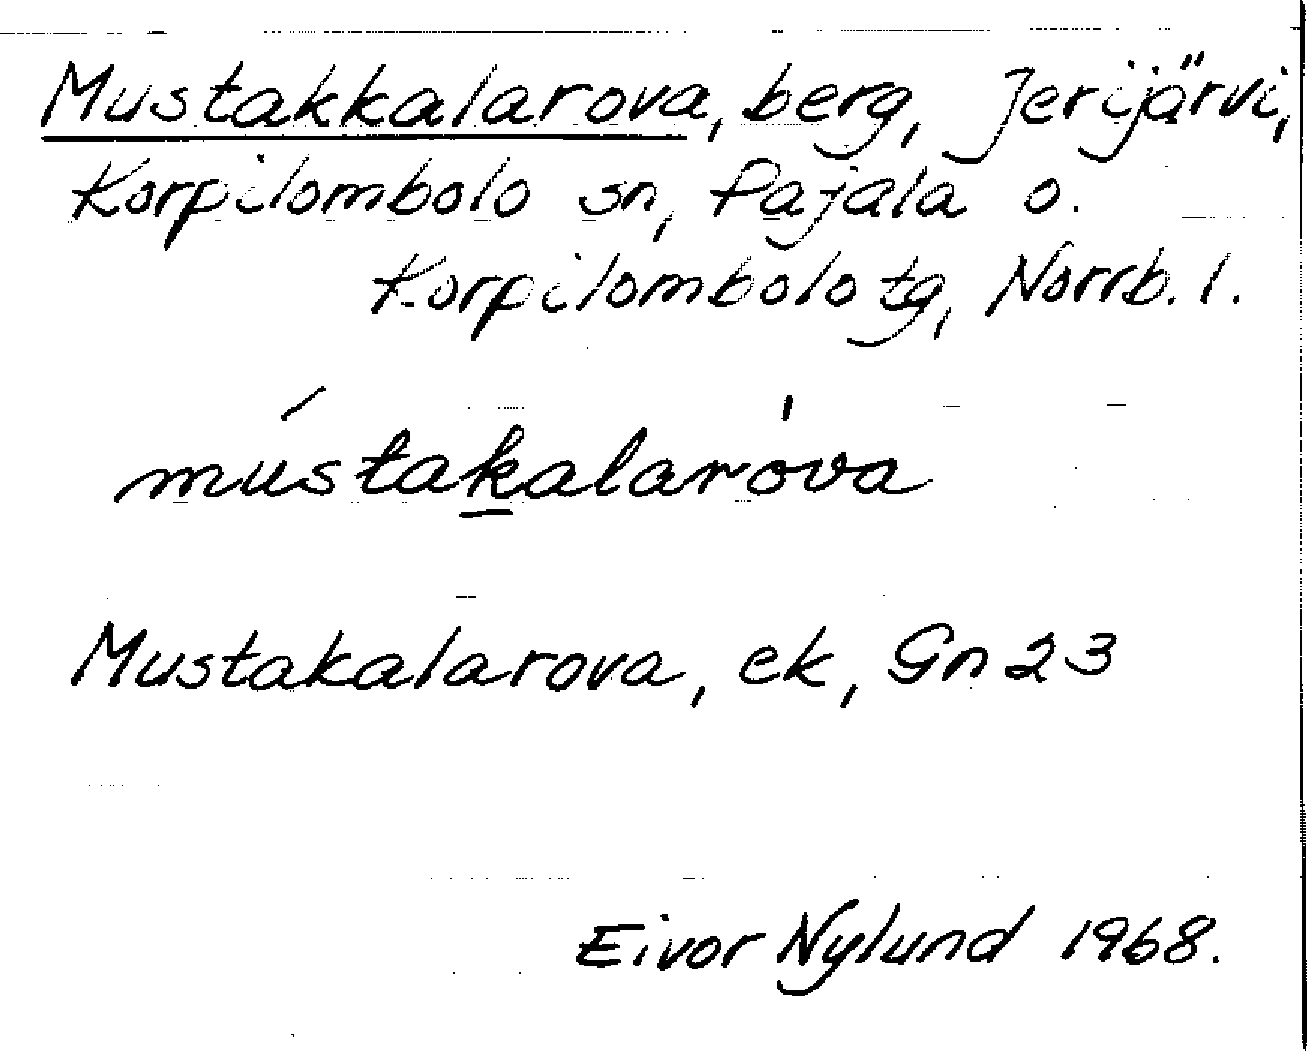 Mustakkalarova, berg, Jerijärvi,
Korpilombolo sn, Pajala o.
Korpilombolo tg, Norrb. l.
mústakalaróva
Mustakalarova, ek, Gn 23
Eivor Nylund 1968.